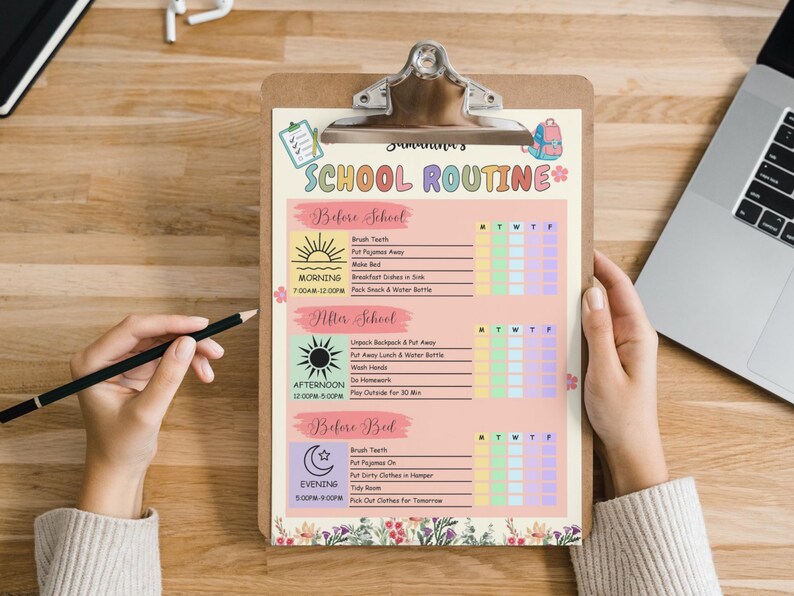 Samantha's
SCHOOL ROUTINE
Before School
M T W T F
Brush Teeth
Put Pajamas Away
Make Bed
Breakfast Dishes in Sink
Pack Snack & Water Bottle
MORNING
7:00AM-12:00PM
After School
M T W T F
Unpack Backpack & Put Away
Put Away Lunch & Water Bottle
Wash Hands
Do Homework
Play Outside for 30 Min
AFTERNOON
12:00PM-5:00PM
Before Bed
M T W T F
Brush Teeth
Put Pajamas On
Put Dirty Clothes in Hamper
Tidy Room
Pick Out Clothes for Tomorrow
EVENING
5:00PM-9:00PM